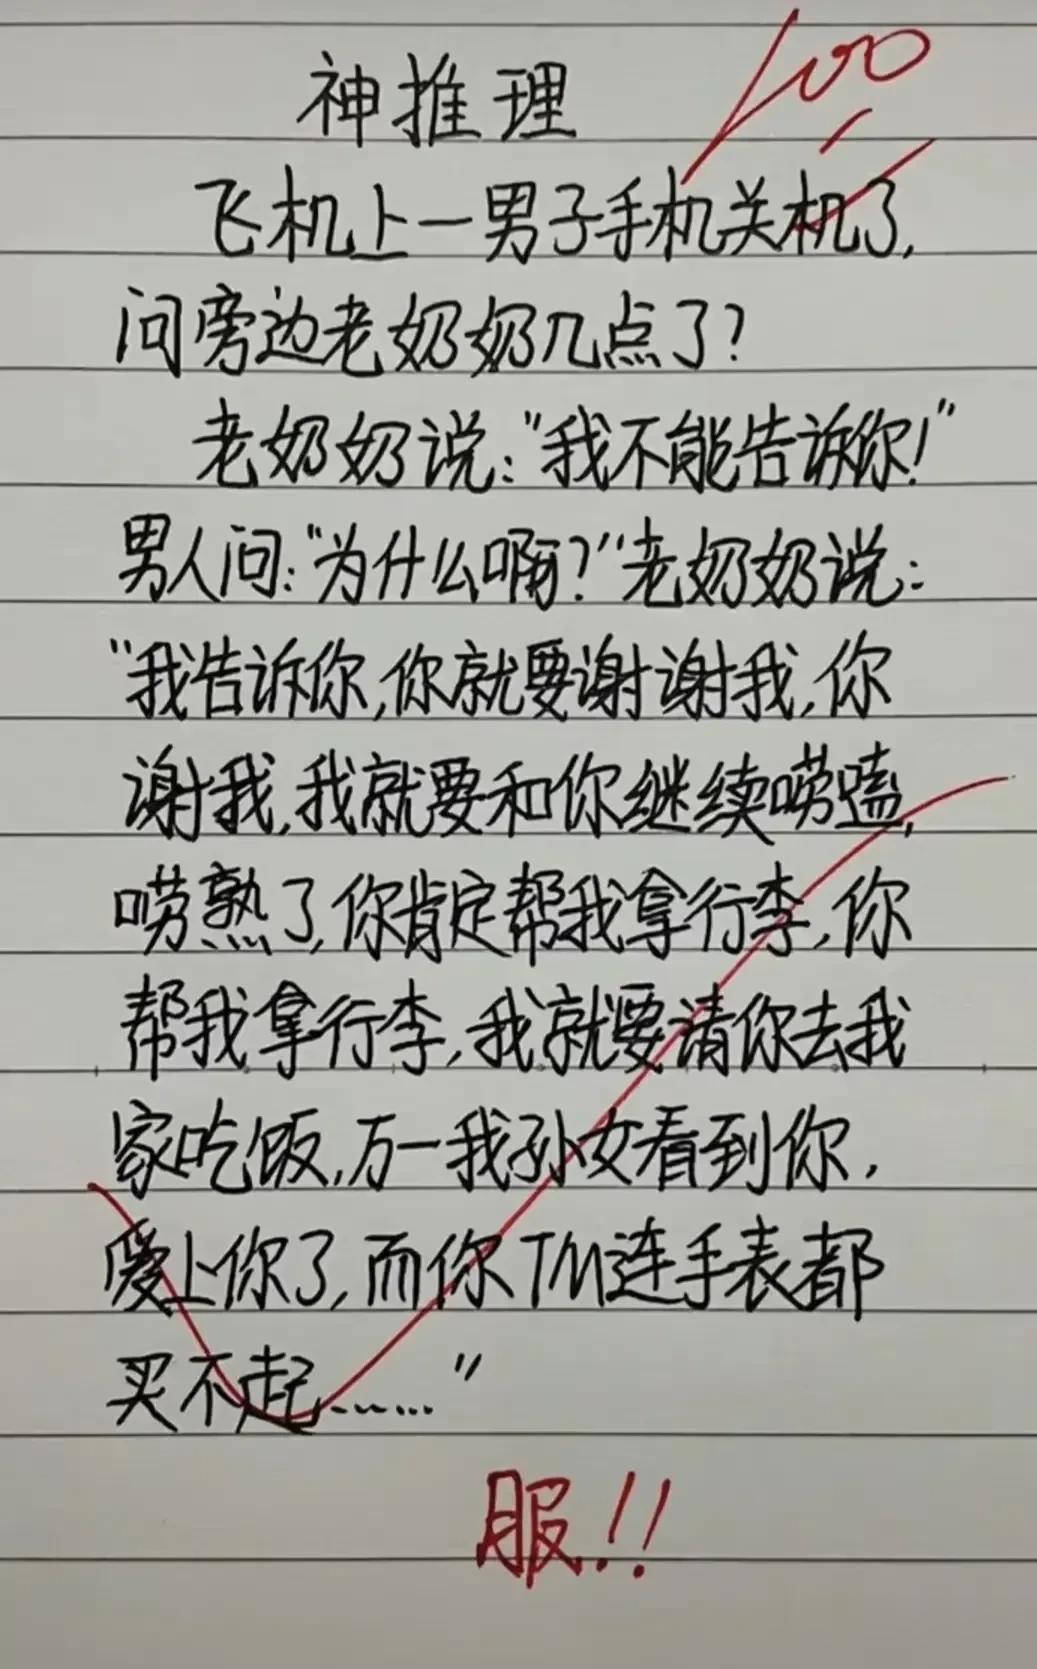 100
神推理
飞机上一男子手机关机了,
问旁边老奶奶几点了?
老奶奶说:"我不能告诉你!"
男人问:"为什么啊?"老奶奶说:
"我告诉你,你就要谢谢我,你
谢我,我就要和你继续唠嗑,
唠熟了,你肯定帮我拿行李,你
帮我拿行李,我就要请你去我
家吃饭,万一我孙女看到你,
爱上你了,而你TM连手表都
买不起……"
服!!